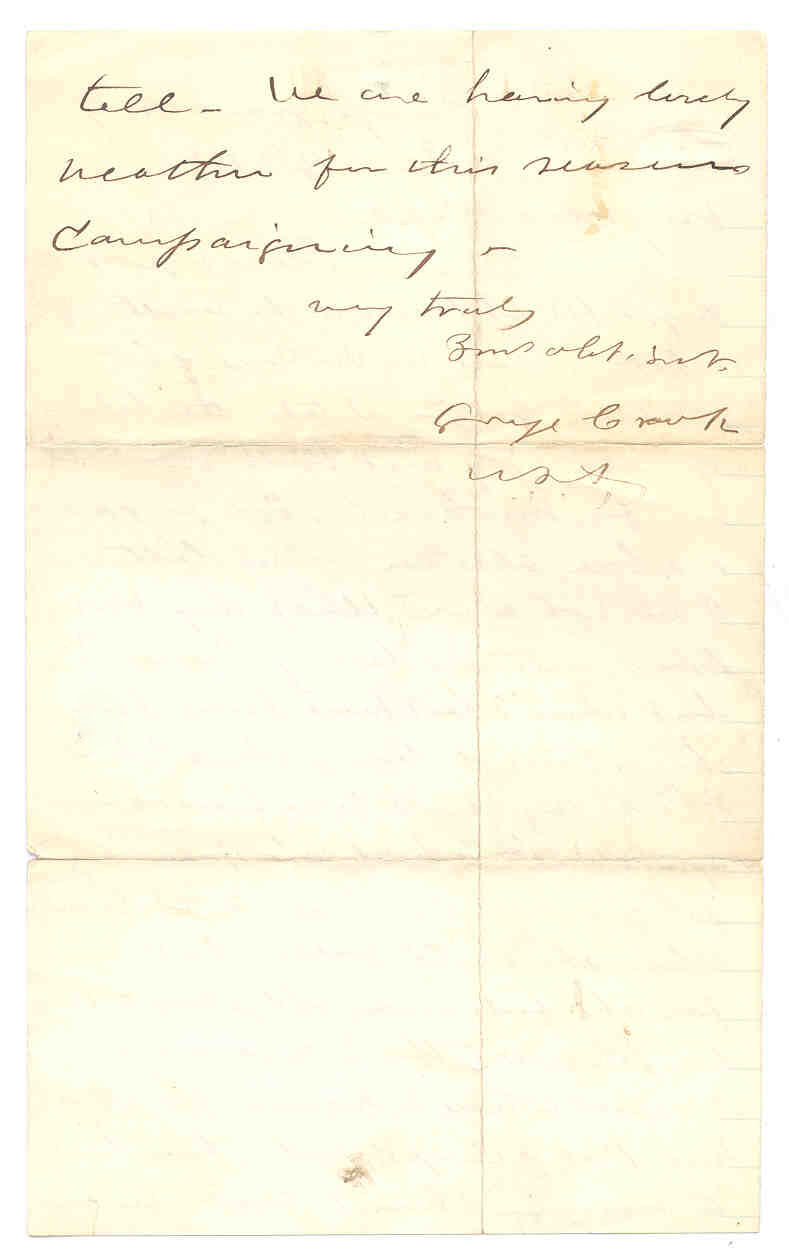 tell - We are having lovely
weather for this seasons
Campaigning -
very truly
Your obt. svt.
George Crook
USA